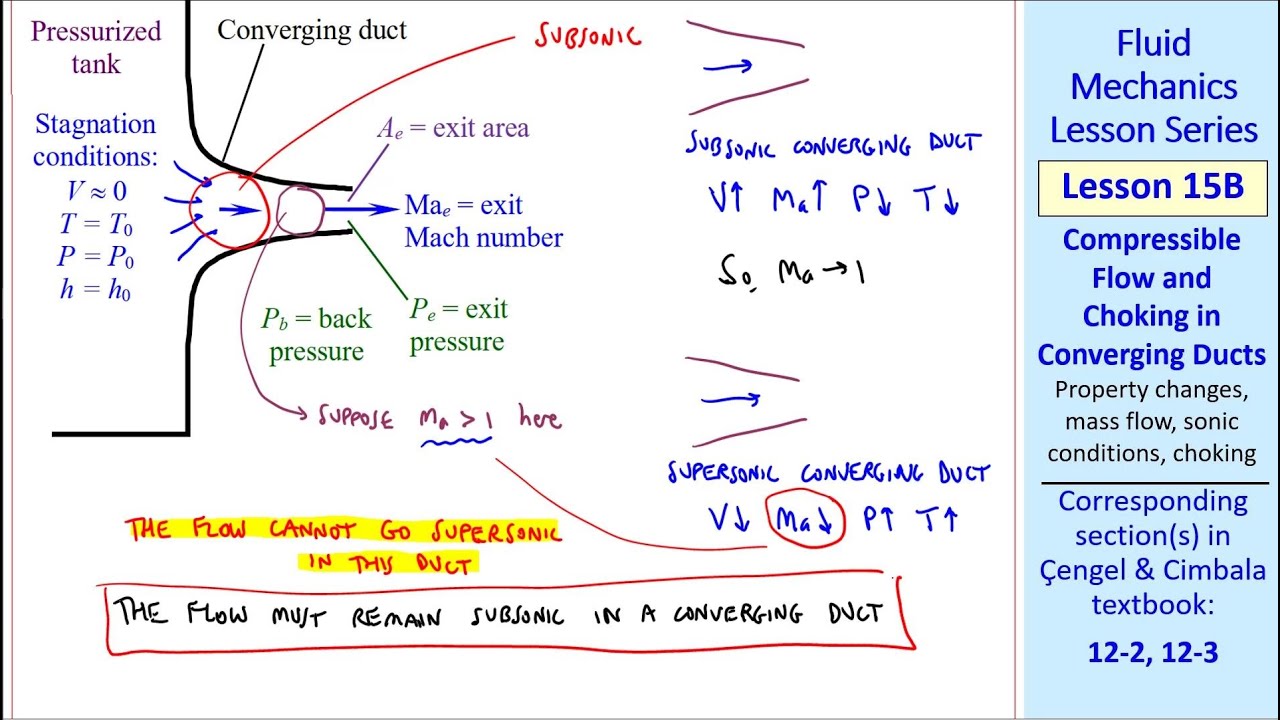 Pressurized
tank
Converging duct
SUBSONIC
Stagnation
conditions:
V ≈ 0
T = T0
P = P0
h = h0
Ae = exit area
Mae = exit
Mach number
Pb = back
pressure
Pe = exit
pressure
SUPPOSE Ma > 1 here
SUBSONIC CONVERGING DUCT
V↑ Ma↑ P↓ T↓
So, Ma → 1
SUPERSONIC CONVERGING DUCT
V↓ Ma↓ P↑ T↑
THE FLOW CANNOT GO SUPERSONIC
IN THIS DUCT
THE FLOW MUST REMAIN SUBSONIC IN A CONVERGING DUCT
Fluid
Mechanics
Lesson Series
Lesson 15B
Compressible
Flow and
Choking in
Converging Ducts
Property changes,
mass flow, sonic
conditions, choking
Corresponding
section(s) in
Çengel & Cimbala
textbook:
12-2, 12-3